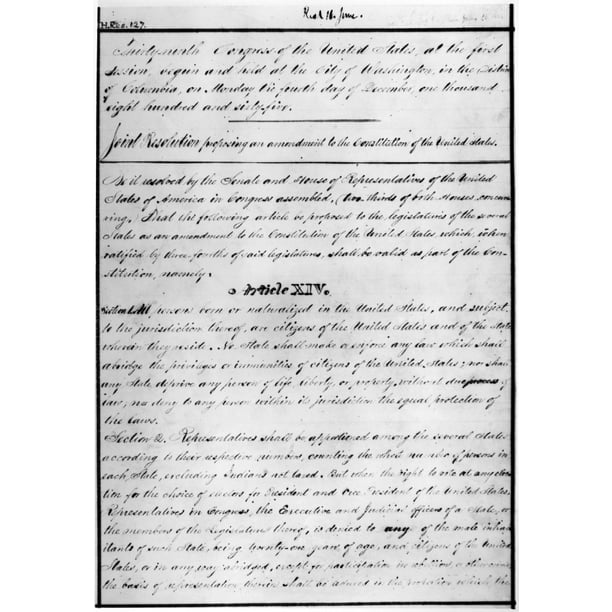 Recd 16 June.
H.Res. 127.
Thirty-ninth Congress of the United States, at the first
session, begun and held at the City of Washington, in the District
of Columbia, on Monday the fourth day of December, one thousand
eight hundred and sixty-five.
Joint Resolution proposing an amendment to the Constitution of the United States.
Be it resolved by the Senate and House of Representatives of the United
States of America in Congress assembled, (two thirds of both Houses concur-
ring,) That the following article be proposed to the legislatures of the several
States as an amendment to the Constitution of the United States, which, when
ratified by three-fourths of said legislatures, shall be valid as part of the Con-
stitution, namely:
Article XIV.
Section 1. All persons born or naturalized in the United States, and subject
to the jurisdiction thereof, are citizens of the United States and of the State
wherein they reside. No State shall make or enforce any law which shall
abridge the privileges or immunities of citizens of the United States; nor shall
any State deprive any person of life, liberty, or property, without due process of
law, nor deny to any person within its jurisdiction the equal protection of
the laws.
Section 2. Representatives shall be apportioned among the several States
according to their respective numbers, counting the whole number of persons in
each State, excluding Indians not taxed. But when the right to vote at any elec-
tion for the choice of electors for President and Vice President of the United States,
Representatives in Congress, the Executive and Judicial officers of a State, or
the members of the Legislature thereof, is denied to any of the male inhab-
itants of such State, being twenty-one years of age, and citizens of the United
States, or in any way abridged, except for participation in rebellion or other crime,
the basis of representation therein shall be reduced in the proportion which the